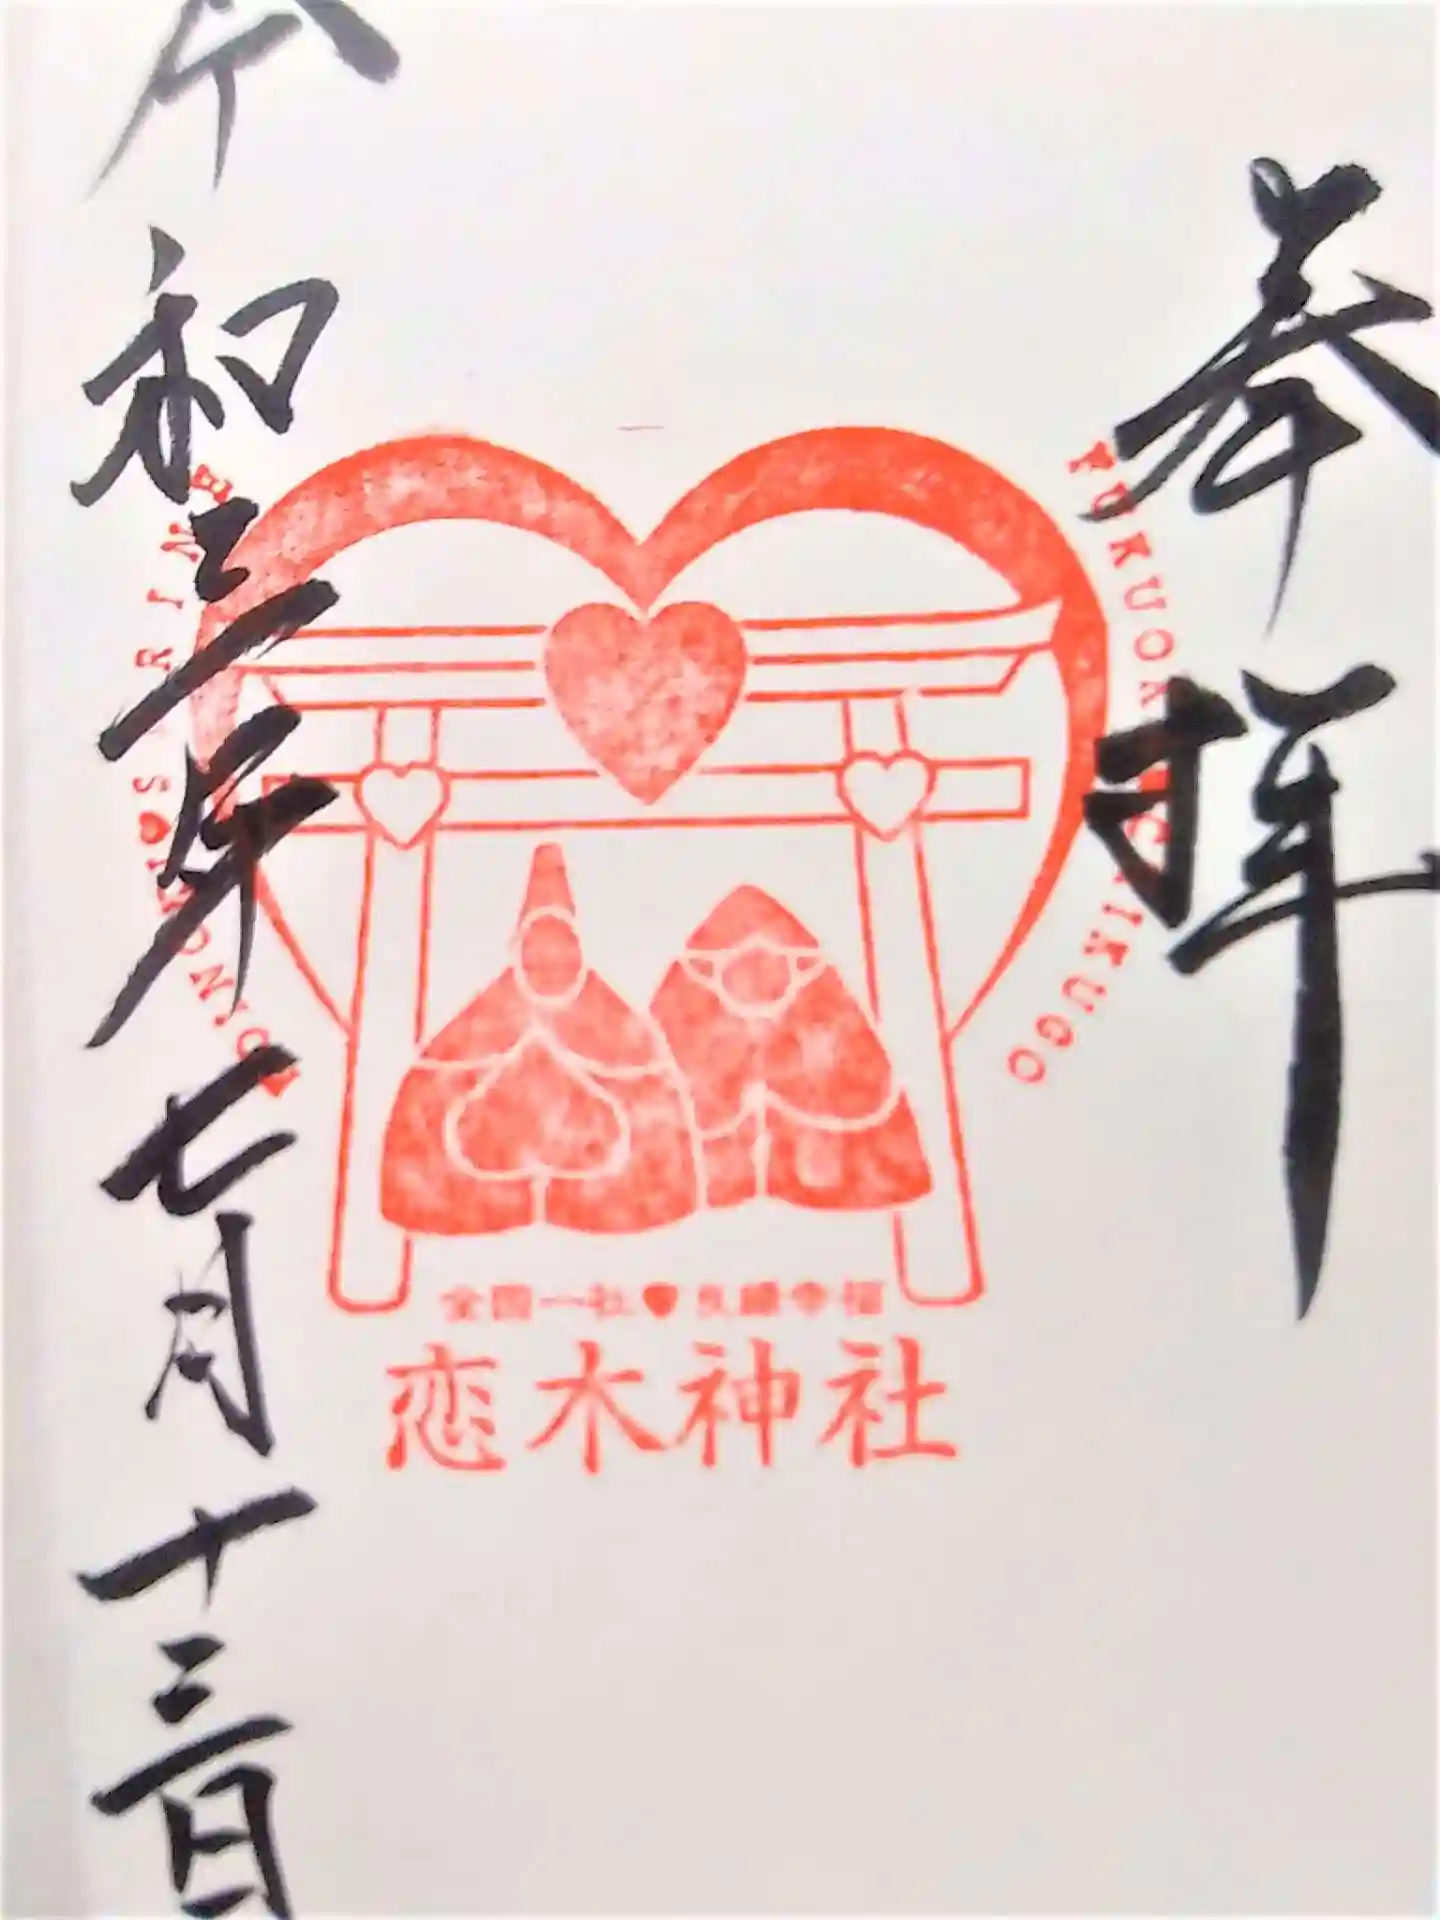 奉拝
FUKUOKA CHIKUGO
KOINOKI♥SHRINE
全国一社♥良縁幸福
恋木神社
令和三年七月十三日